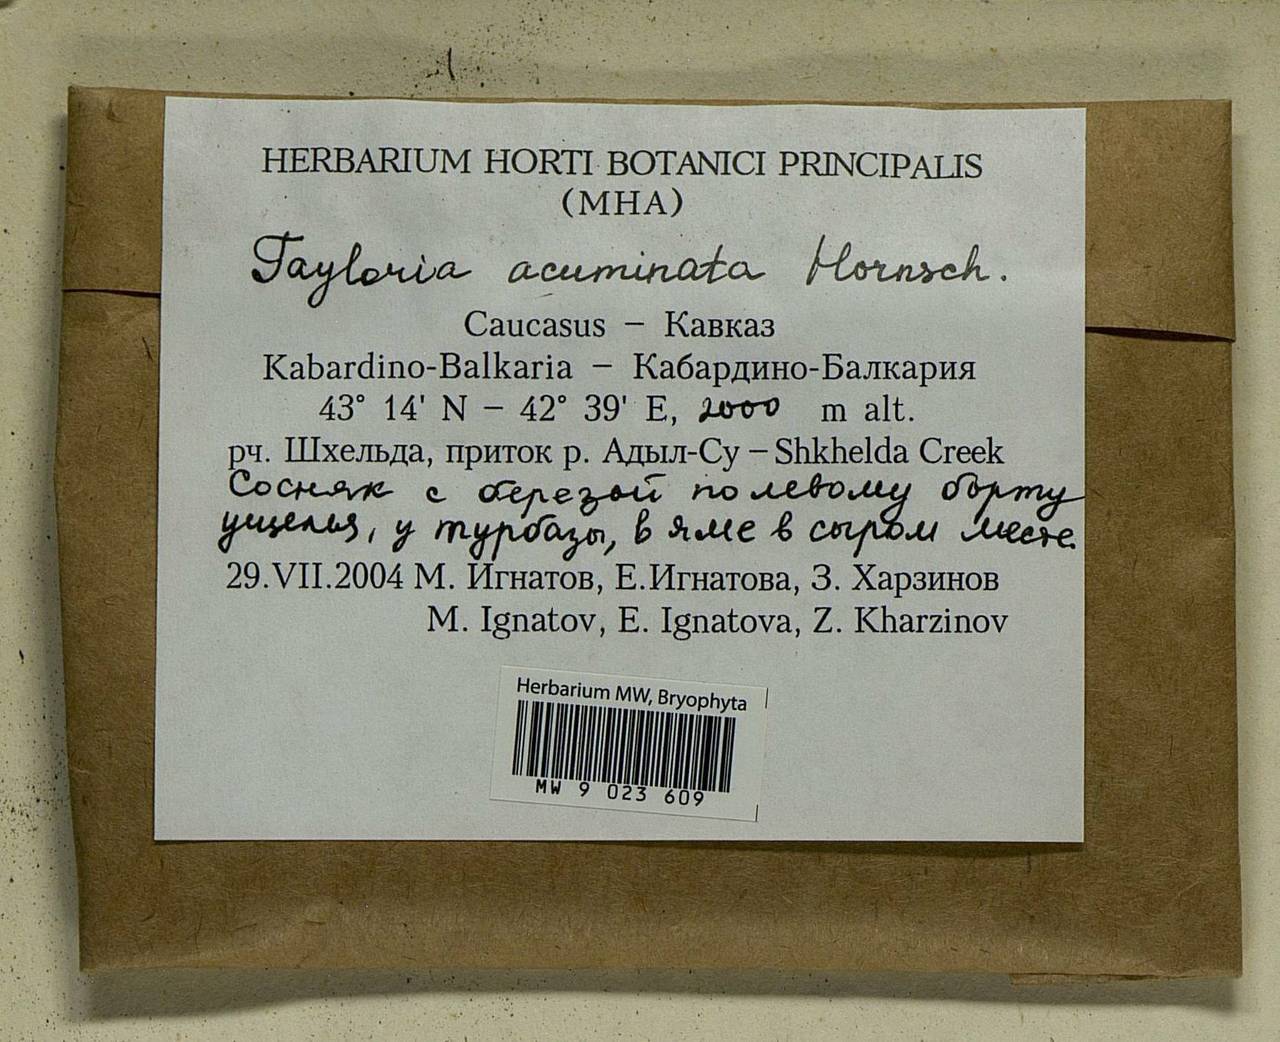 HERBARIUM HORTI BOTANICI PRINCIPALIS
(MHA)
Tayloria acuminata Hornsch.
Caucasus – Кавказ
Kabardino-Balkaria – Кабардино-Балкария
43° 14' N – 42° 39' E, 2000 m alt.
рч. Шхельда, приток р. Адыл-Су – Shkhelda Creek
Сосняк с березой по левому борту
ущелья, у турбазы, в яме в сыром месте.
29.VII.2004 М. Игнатов, Е.Игнатова, З. Харзинов
M. Ignatov, E. Ignatova, Z. Kharzinov
Herbarium MW, Bryophyta
MW 9 023 609